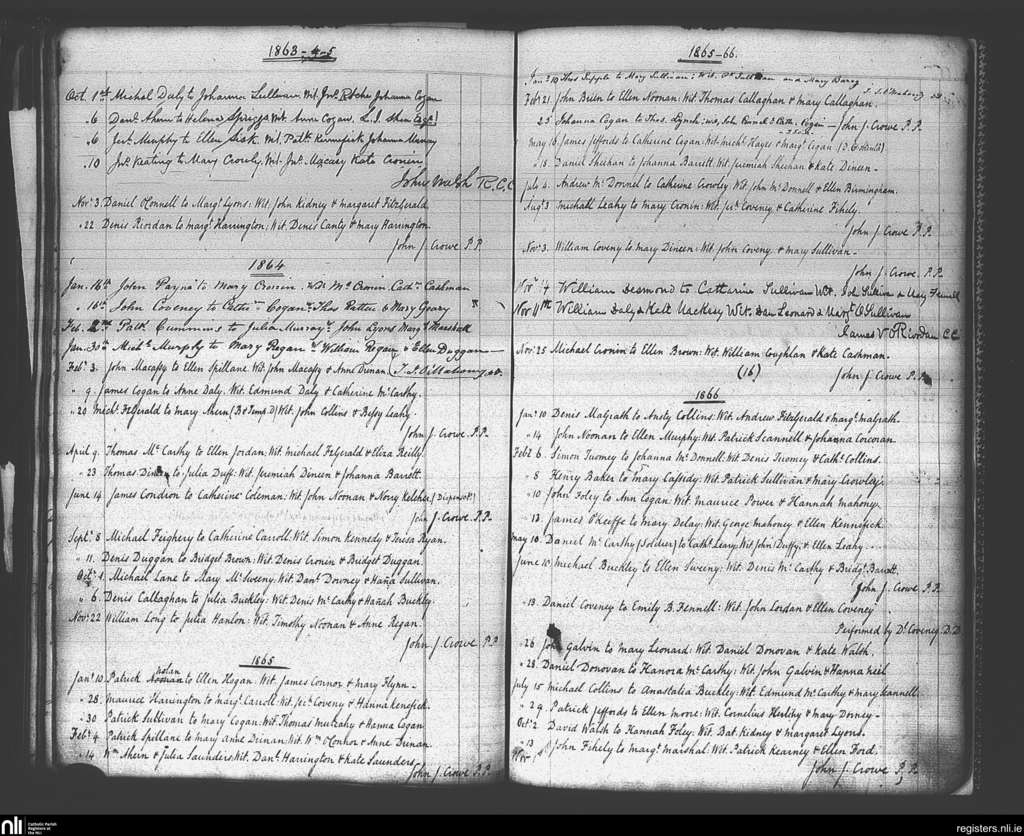 1863-4-5
Oct 1st Michel Daly to Johanna Sullivan Wit Jno Roche Johanna Cogan
" 6 Danl Ahern to Helena Spriggs Wit Anne Cogan,
" 6 Jerh Murphy to Ellen Wit Patk Kennefick Johanna Murray
" 10 Jno Keating to Mary Crowly Wit Jno Kate Cronin
John Walsh R.C.C
Novr 3 Daniel O'Connell to Margt Lyons: Wit: John Kidney & Margaret Fitzgerald
" 22 Denis Riordan to Margt Harrington; Wit Denis Canty & Mary Harrington
John J. Crowe P.P.
1864
Jan. 16th John Payne to Mary Cronin. Wit Mc Cronin Cashman
" 16th John Coveney to Cathne Cogan. Thos & Mary Geary
Feb. 2nd Patk Cummins to Julia Murray John Lyons Margt Marshall
Jan. 30th Michl Murphy to Mary Regan William Regan & Ellen Duggan
Feby 3. John Macassy to Ellen Spillane Wit John Macassy & Anne Dunan
" 9. James Cogan to Anne Daly. Wit Edmund Daly & Catherine McCarthy.
" 20 Michl Fitzgerald to Mary Ahern Wit. John Collins & Betsy Leahy.
John J. Crowe P.P.
April 9. Thomas McCarthy to Ellen Jordan; Wit Michael Fitzgerald & Eliza Reilly
" 23 Thomas Dineen to Julia Duff: Wit Jeremiah Dineen & Johanna Barrett.
June 14 James Condron to Catherine Coleman: Wit John Noonan & Nory Kelcher (Dispensat.)
John J. Crowe P.P.
Septr 8 Michael Feighery to Catherine Carroll: Wit. Simon Kennedy & Teresa Ryan.
" 11. Denis Duggan to Bridget Brown: Wit Denis Cronin & Bridget Duggan.
Octr 1 Michael Lane to Mary McSweeny: Wit. Danl Downey & Hana Sullivan.
" 6. Denis Callaghan to Julia Buckley: Wit. Denis McCarthy & Hanah Buckley.
Novr 22 William Long to Julia Hanlon: Wit. Timothy Noonan & Anne Regan.
John J. Crowe P.P.
1865
nolan
Jany 10 Patrick Noonan to Ellen Hegan: Wit. James Connor & Mary Flynn -
" 28. Maurice Harrington to Margt Carroll: Wit. Jerh Coveny & Hanna Kenefick.
" 30 Patrick Sullivan to Mary Cogan. Wit: Thomas Mulcahy & Hanna Cogan
Feby 4 Patrick Spillane to Mary Anne Dunan: Wit. Wm O'Connor & Anne Dunan.
" 14 Wm Ahern & Julia Saunders: Wit. Danl Harrington & Kate Saunders
John J. Crowe P.P.
1865-66.
Jany 10 Thos Supple to Mary Sullivan; Wit. Pk Sullivan and Mary Barry
Feby 21 John Brien to Ellen Noonan: Wit Thomas Callaghan & Mary Callaghan.
" 25 Johanna Cogan to Thos. Lynch: - John J. Crowe P.P.
May 16 James Jeffords to Catherine Cogan: Wit. Michl Hayes & Margt Cogan
" 18 Daniel Sheehan to Johanna Barrett. Wit Jeremiah Sheehan & Kate Dineen -
July 4. Andrew McDonnel to Catherine Crowley. Wit. John McDonnell & Ellen Birmingham.
Augt 3 Michael Leahy to Mary Cronin: Wit. Jerh Coveney & Catherine Fihely.
John J. Crowe P.P.
Novr 3. William Coveny to Mary Dineen: Wit. John Coveny, & Mary Sullivan -
John J. Crowe. P.P.
Novr 4 William Desmond to Catharine Sullivan Wit.
Nov 11th William Daly & Kate Wit. Dan Leonard & O'Sullivan
James O'Riordan C.C.
Novr 25 Michael Cronin to Ellen Brown: Wit. William Coughlan & Kate Cashman.
(16) John J. Crowe P.P.
1866
Jany 10 Denis Magrath to Ansty Collins: Wit. Andrew Fitzgerald & Margt Magrath.
" 14 John Noonan to Ellen Murphy: Wit. Patrick Scannell & Johanna Corcoran
Feby 6. Simon Twomey to Johanna McDonnell: Wit Denis Twomey & Cathe Collins.
" 8 Henry Baker to Mary Cassidy: Wit. Patrick Sullivan & Mary Crowley
" 10 John Foley to Ann Cogan. Wit Maurice Power & Hannah Mahony.
" 13. James O'Keeffe to Mary Delay: Wit. George Mahoney & Ellen Kennefick
May 10. Daniel McCarthy (Soldier) to Cathe Leary: Wit. John Duffy, & Ellen Leahy -
June 10 Michael Buckley to Ellen Sweeny: Wit. Denis McCarthy & Bridgt Barrett.
John J. Crowe P.P.
" 13. Daniel Coveney to Emily B. Fennell: Wit. John Lordan & Ellen Coveney
Performed by Dr Coveney D.D.
" 26 John Galvin to Mary Leonard: Wit. Daniel Donovan & Kate Walsh.
" 28. Daniel Donovan to Hanora McCarthy; Wit. John Galvin & Hanna Neil
July 15 Michael Collins to Anastatia Buckley: Wit. Edmund McCarthy & Mary Scannell.
" 29. Patrick Jeffords to Ellen Moore: Wit. Cornelius Herlihy & Mary Dorney -
Octr 2 David Walsh to Hannah Foley: Wit. Bat Kidney & Margaret Lyons.
" 13 John Fihely to Margt Marshal. Wit. Patrick Kearney & Ellen Ford.
John J. Crowe P.P.
nli
Catholic Parish
Registers at
the NLI
registers.nli.ie